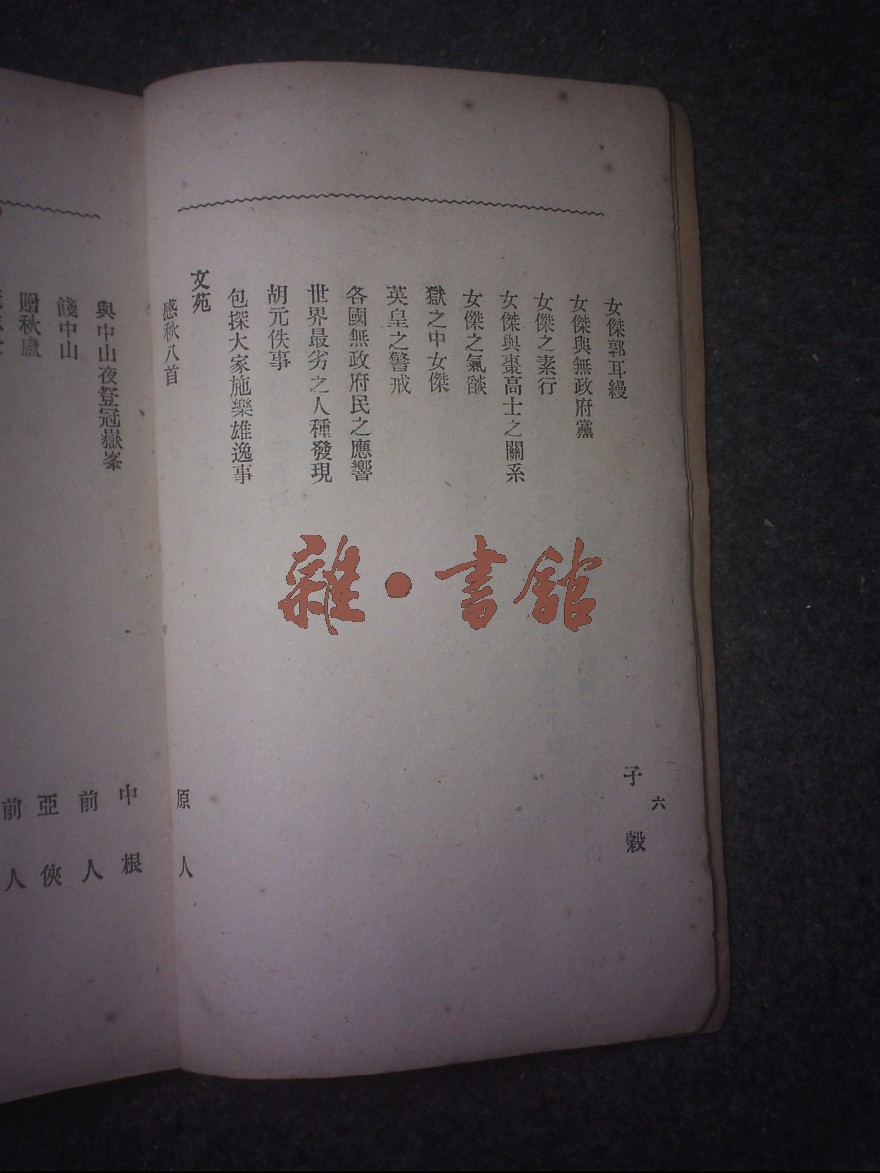 六
女傑郭耳縵 子穀
女傑與無政府黨
女傑之素行
女傑與棗高士之關系
女傑之氣燄
獄之中女傑
英皇之警戒
各國無政府民之應響
世界最劣之人種發現
胡元佚事
包探大家施樂雄逸事
文苑
感秋八首 原人
與中山夜登冠嶽峯 中根
餞中山 前人
贈秋盧 亞俠
前人
雜·書館